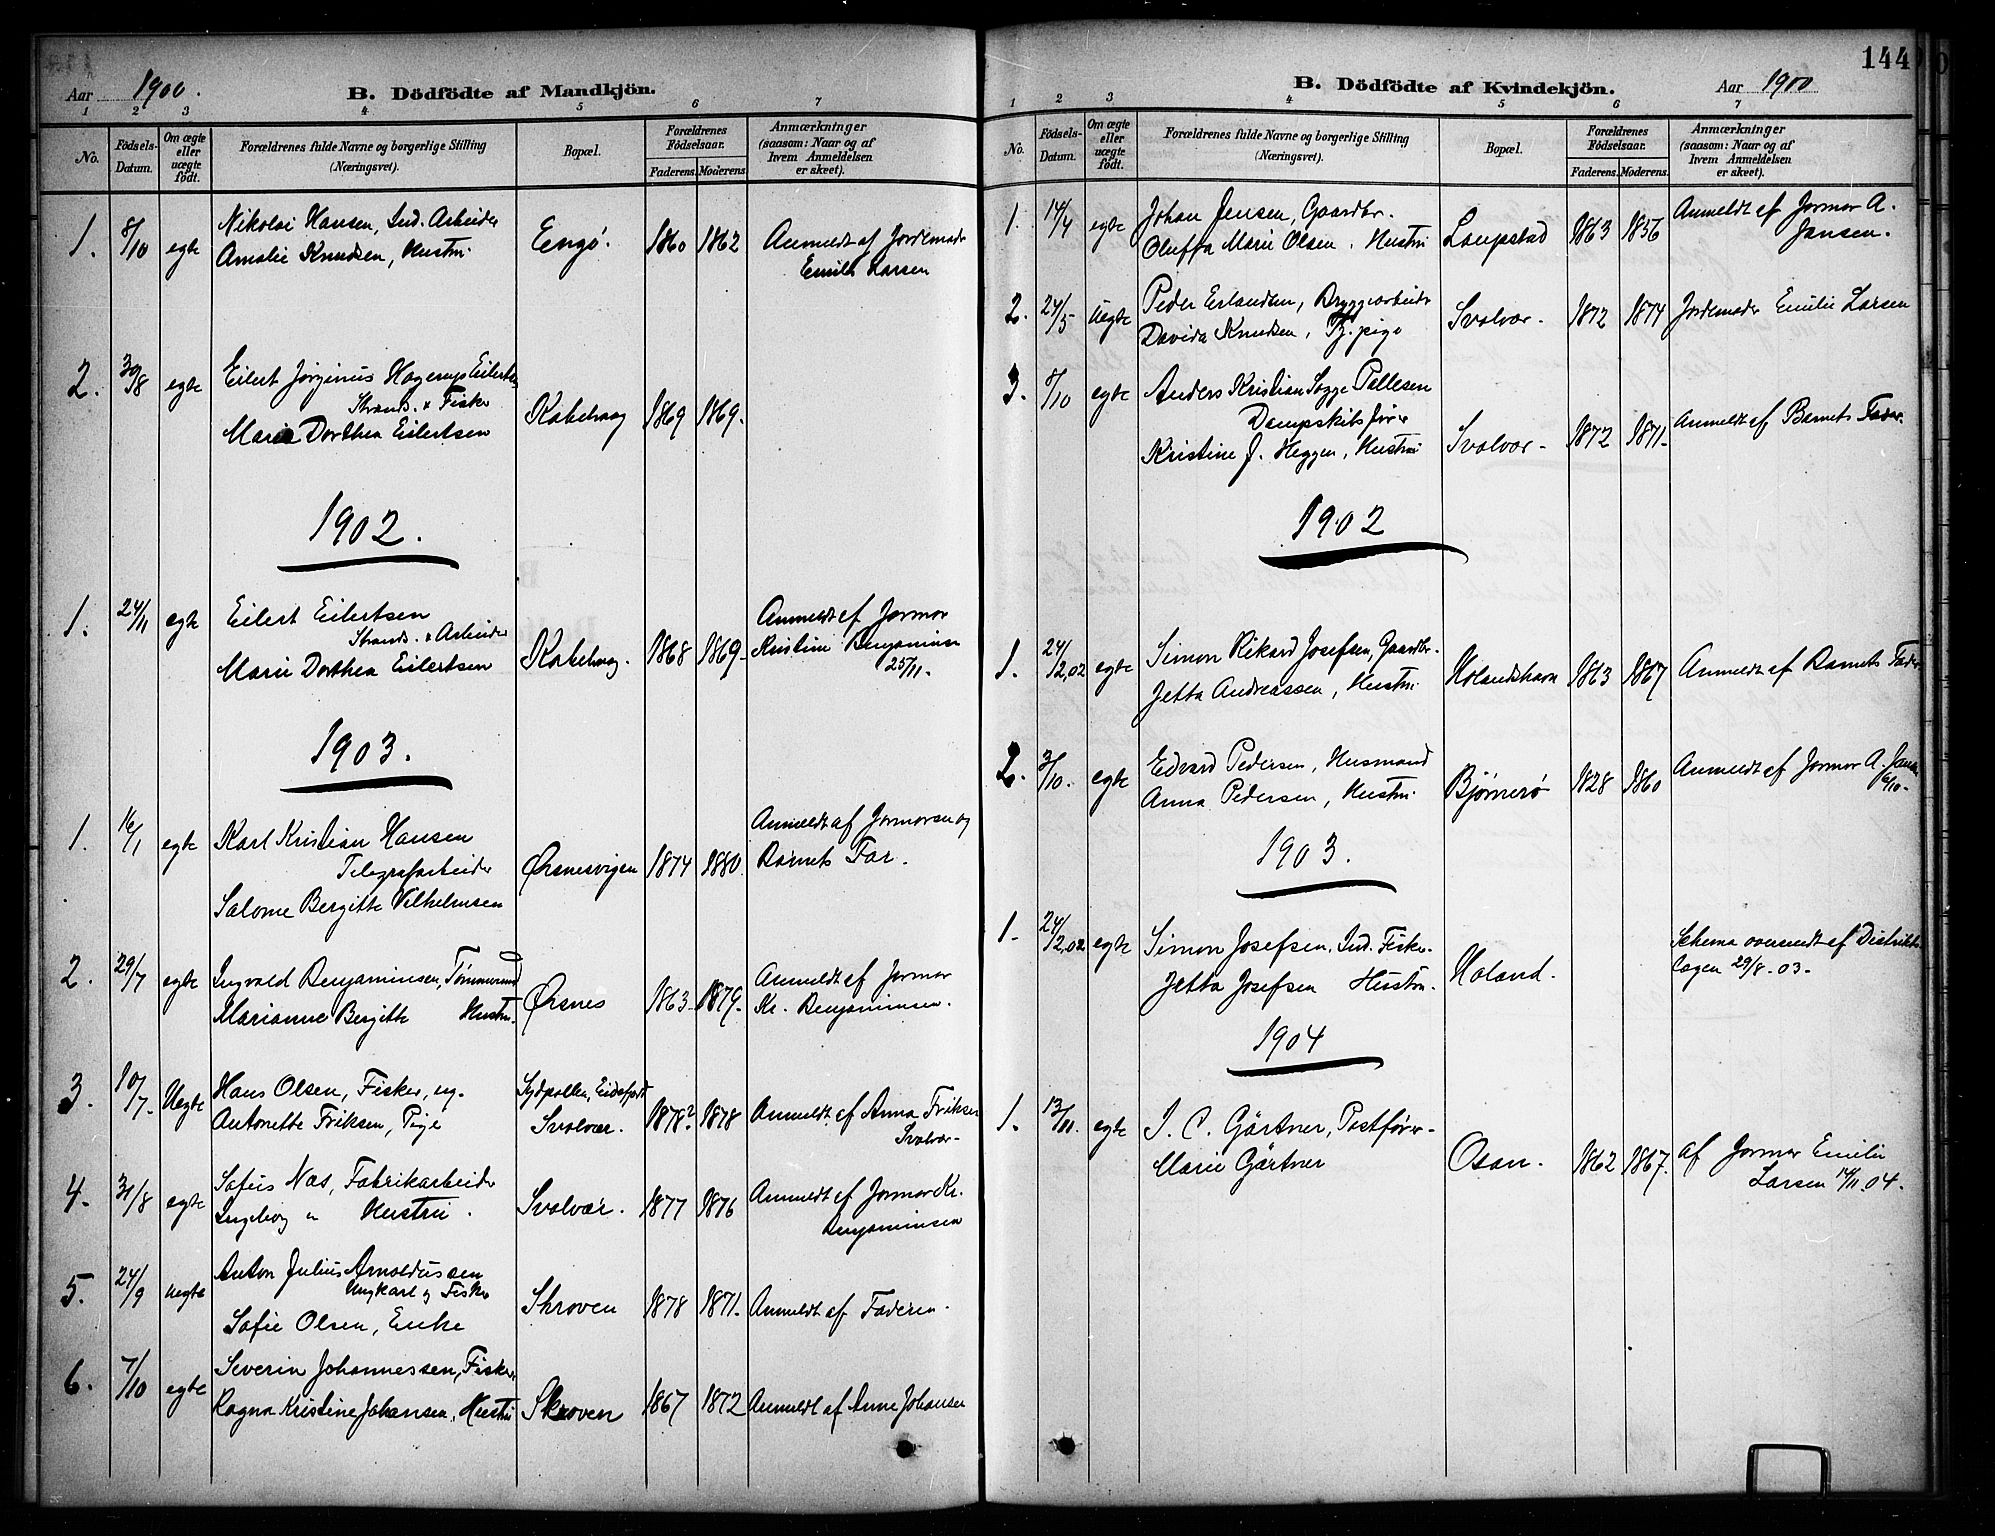 Aar 1900.
B. Dödfödte af Mandkjön.
1 2 3 4 5 6 7
No.
Födsels-
Datum.
Om ægte
eller
uægte
födt.
Forældrenes fulde Navne og borgerlige Stilling
(Næringsvei).
Bopæl.
Forældrenes
Födselsaar.
Faderens. Moderens
Anmærkninger
(saasom: Naar og af
hvem Anmeldelsen
er skeet).
1. 8/10 egte Nikolai Hansen, Ind. Arbeider
Amalie Knudsen, Hustru
Engø. 1860 1862 Anmeldt af Jordemoder
Emilie Larsen
2. 30/8 egte Eilert Jørginus Hagerup Eilertsen
Strands. & Fisker
Marie Dorthea Eilertsen
Kabelvaag 1869 1869.
1902.
1. 24/11 egte Eilert Eilertsen
Strands. & Arbeider
Marie Dorthea Eilertsen
Kabelvag. 1868 1869. Anmeldt af Jormor
Kristine Benjaminsen
25/11.
1903.
1. 16/1 egte Karl Kristian Hansen
Telegrafarbeider
Salome Bergitte Vilhelmsen
Ørsnesvigen 1874 1880. Anmeldt af Jormoren og
Barnets Far.
2. 29/7 egte Ingvald Benjaminsen, Tømmermand
Marianne Bergitte Hustru.
Ørsnes 1863 1879. Anmeldt af Jormor
Kr. Benjaminsen.
3. 10/7. Uegte Hans Olsen, Fisker, ug.
Antonette Eriksen, Pige
Sydpollen, Eidsfjord
Svolvær. 1878? 1878 Anmeldt af Anna Eriksen
Svolvær
4. 31/8 egte Sofus Næs, Fabrikarbeider
Ingeborg " Hustru.
Svolvær. 1877 1876 Anmeldt af Jormor Kr.
Benjaminsen
5. 24/9 uegte Anton Julius Arnoldussen
Ungkarl og Fisker
Sofie Olsen, Enke
Skroven 1878 1871. Anmeldt af Faderen.
6. 7/10 egte Severin Johannessen, Fisker,
Ragna Kristine Johansen, Hustru
Skroven 1867 1872 Anmeldt af Anne Johansen
144
B. Dödfödte af Kvindekjön.
Aar 1900
1 2 3 4 5 6 7
No.
Födsels-
Datum.
Om ægte
eller
uægte
födt.
Forældrenes fulde Navne og borgerlige Stilling
(Næringsvei).
Bopæl.
Forældrenes
Födselsaar.
Faderens. Moderens.
Anmærkninger
(saasom: Naar og af
hvem Anmeldelsen
er skeet).
1. 14/4 egte Johan Jensen, Gaardbr.
Oluffa Marie Olsen, Hustru
Laupstad 1863 1856 Anmeldt af Jormor A.
Jansen.
2. 24/5 Uegte Peder Erlandsen, Bryggearbeider
Davida Knudsen, Tj. pige
Svolvær. 1872 1874 Jordemoder Emilie Larsen
3. /10 egte Anders Kristian Sogge Pallesen
Dampskibsfører
Kristine J. Heggen, Hustru
Svolvær 1872 1871. Anmeldt af Barnets Fader.
1902
1. 24/12,02 egte Simon Rikard Josefsen, Gaardbr.
Jetta Andreassen, Hustru
Holandshavn 1863 1867 Anmeldt af Barnets Fader
2. 3/10. egte Edvard Pedersen, Husmand
Anna Pedersen, Hustru.
Bjørnerø 1828 1860 Anmeldt af Jormor A. Jansen
6/10.
1903.
1. 24/12,02 egte Simon Josefsen, Ind. Fisker.
Jetta Josefsen Hustru.
Holand. Schema oversendt af Distrikts
lægen 29/8. 03.
1904
1. 13/11. egte J. C. Gärtner, Postfører
Marie Gärtner
Osan. 1862 1867. af Jormor Emilie
Larsen 14/11. 04.